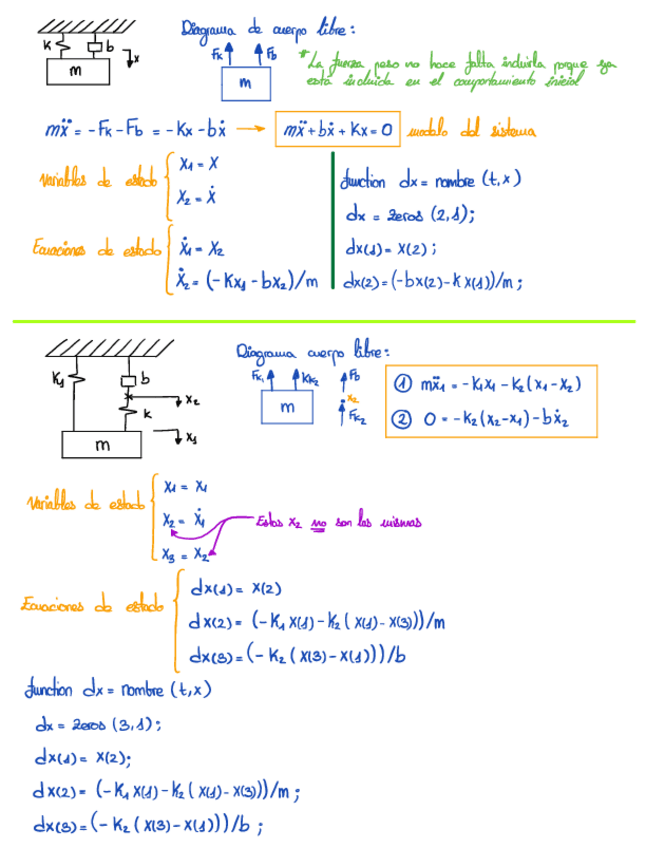 Diagrama de cuerpo libre:
K b x
m
Fk Fb
m
* La fuerza peso no hace falta incluirla porque ya
está incluida en el comportamiento inicial
mẍ = -Fk - Fb = -Kx - bẋ → mẍ + bẋ + Kx = 0 modelo del sistema
Variables de estado
x1 = x
x2 = ẋ
Ecuaciones de estado
ẋ1 = x2
ẋ2 = (-Kx1 - bx2)/m
function dx = nombre (t,x)
dx = zeros (2,1);
dx(1) = x(2);
dx(2) = (-bx(2) - k x(1))/m;
Diagrama cuerpo libre:
K1 b x2
k
m x1
Fk1 Kk2
m
Fb
x2
Fk2
① mẍ1 = -K1x1 - K2(x1 - x2)
② 0 = -K2(x2 - x1) - bẋ2
Variables de estado
x1 = x1
x2 = ẋ1
x3 = x2
Estas x2 no son las mismas
Ecuaciones de estado
dx(1) = x(2)
dx(2) = (-K1 x(1) - K2 (x(1) - x(3)))/m
dx(3) = (-K2 (x(3) - x(1)))/b
function dx = nombre (t,x)
dx = zeros (3,1);
dx(1) = x(2);
dx(2) = (-K1 x(1) - K2 (x(1) - x(3)))/m;
dx(3) = (-K2 (x(3) - x(1)))/b;